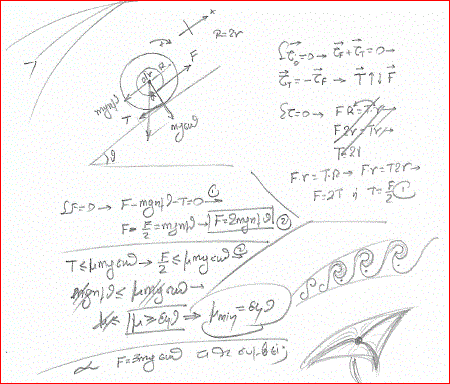 x
R=2r
R
r
F
mgημθ
T
mgσυνθ
θ
Στ=0→ τF+τT=0→
τT=-τF → T↑↓F
Στ=0→ FR=T·r→
F2r=Tr→
T=2F
F·r=T·R→ Fr=T2r→
F=2T ή T=F/2 ①
ΣF=0→ F-mgημθ-T=0 ①→
F-F/2=mgημθ→ F=2mgημθ ②
T≤μmgσυνθ→ F/2≤μmgσυνθ ②→
mgημθ≤μmgσυνθ→
μ≥εφθ ⇒ μmin=εφθ
F=3mgσυνθ